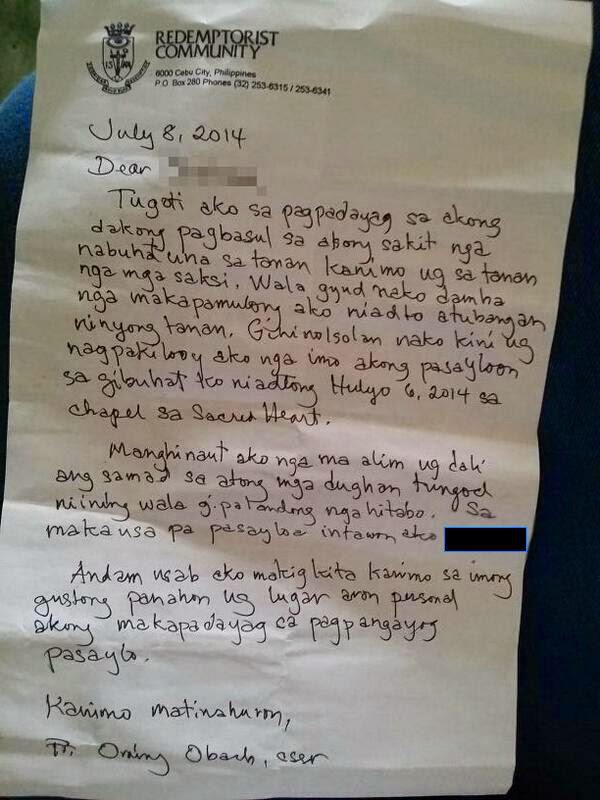 REDEMPTORIST
COMMUNITY
6000 Cebu City, Philippines
P.O. Box 280 Phones (32) 253-6315 / 253-6341
July 8, 2014
Dear
Tugoti ako sa pagpadayag sa akong
dakong pagbasul sa akong sakit nga
nabuhat una sa tanan kanimo ug sa tanan
nga mga saksi. Wala gyud nako damha
nga makapamulong ako niadto atubangan
ninyong tanan. Gihinolsolan nako kini ug
nagpakilooy ako nga imo akong pasayloon
sa gibuhat ko niadtong Hulyo 6, 2014 sa
chapel sa Sacred Heart.
Manghinaut ako nga ma alim ug dali
ang samad sa atong mga dughan tungod
niining wala gipalandong nga hitabo. Sa
makausa pa pasayloa intawon ako
Andam usab ako makigkita kanimo sa imong
gustong panahon ug lugar aron personal
akong makapadayag sa pagpangayog
pasaylo.
Kanimo matinahuron,
Fr. Oming Obach, cssr